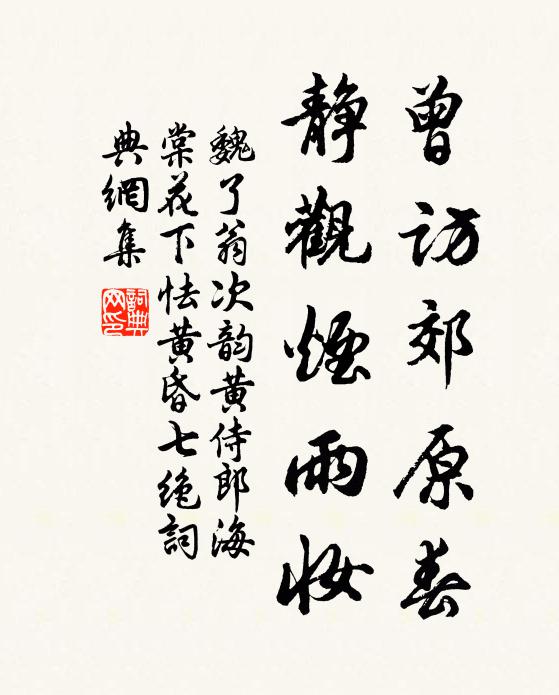 曾访郊原春
静觀煙雨妆
魏了翁次韵黄侍郎海
棠花下怯黄昏七绝詞
典網集
詞典网印